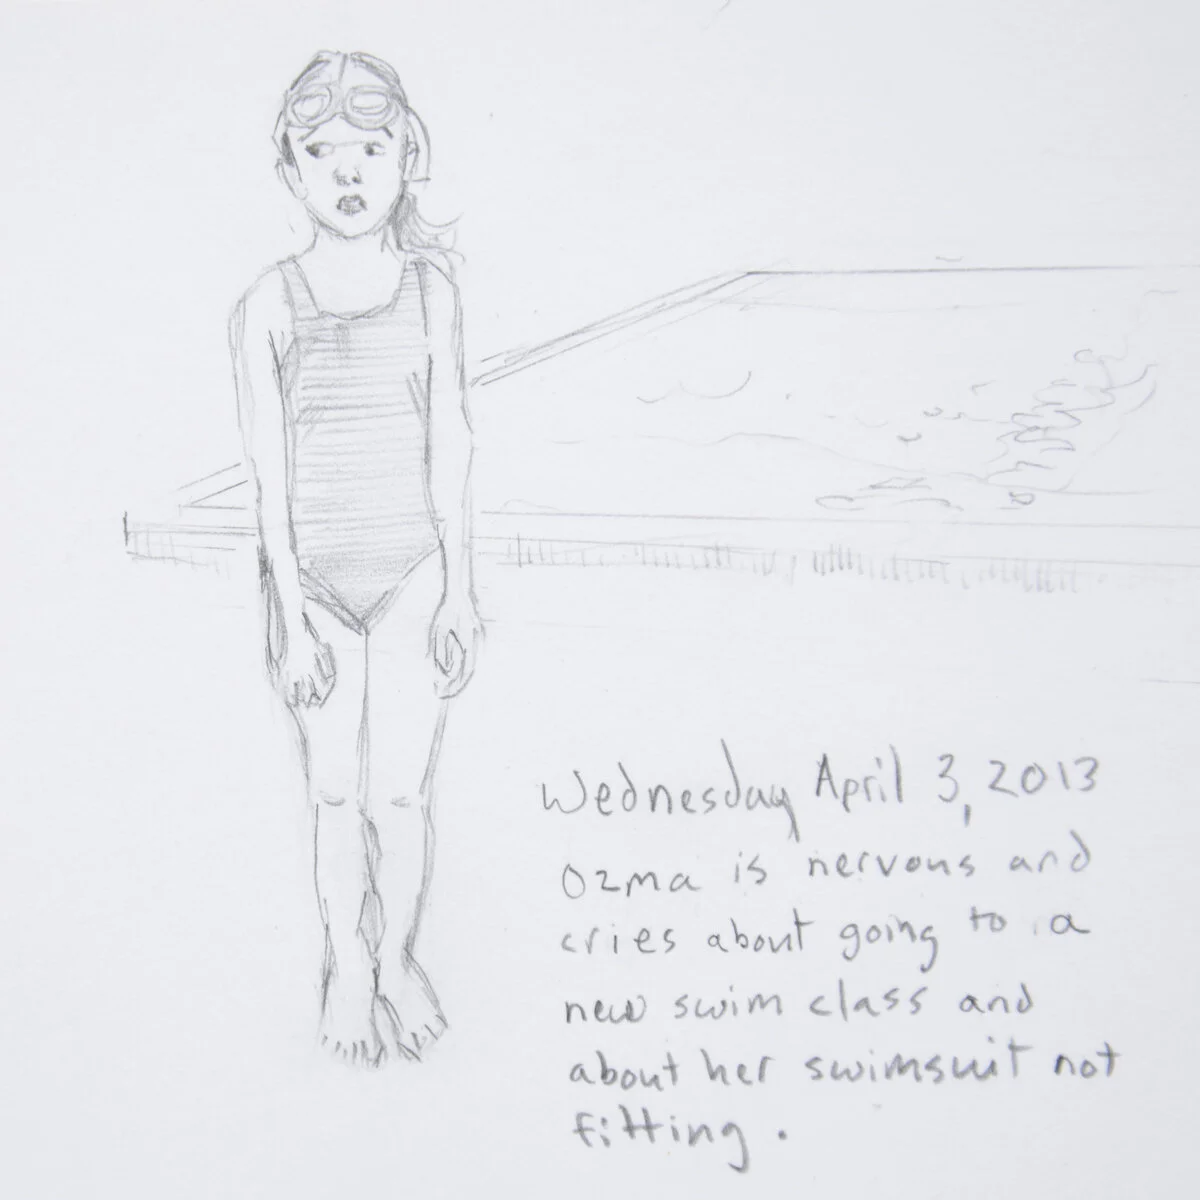 Wednesday April 3, 2013
Ozma is nervous and
cries about going to a
new swim class and
about her swimsuit not
fitting.